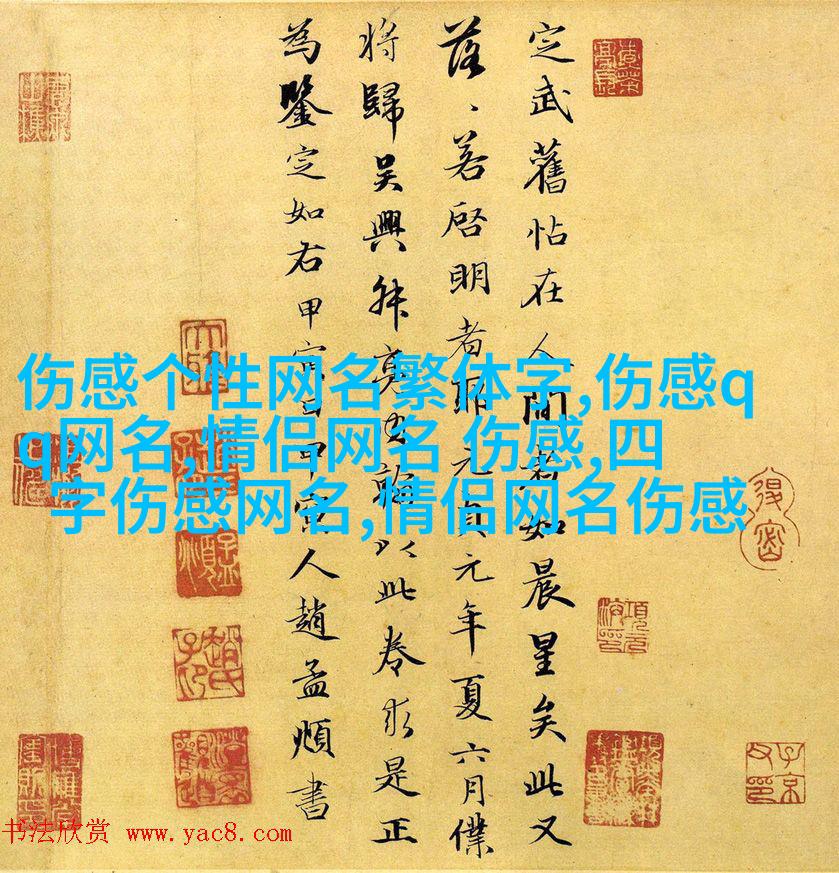 定武舊帖在人間者如晨星矣此又
落、若啓明者耶元貞元年夏六月僕
將歸吳興叔亮內翰以此卷求是正
為鑒定如右甲寅日甲寅人趙孟頫書
伤感个性网名繁体字,伤感q
q网名,情侣网名 伤感,四
字伤感网名,情侣网名伤感
书法欣赏 www.yac8.com